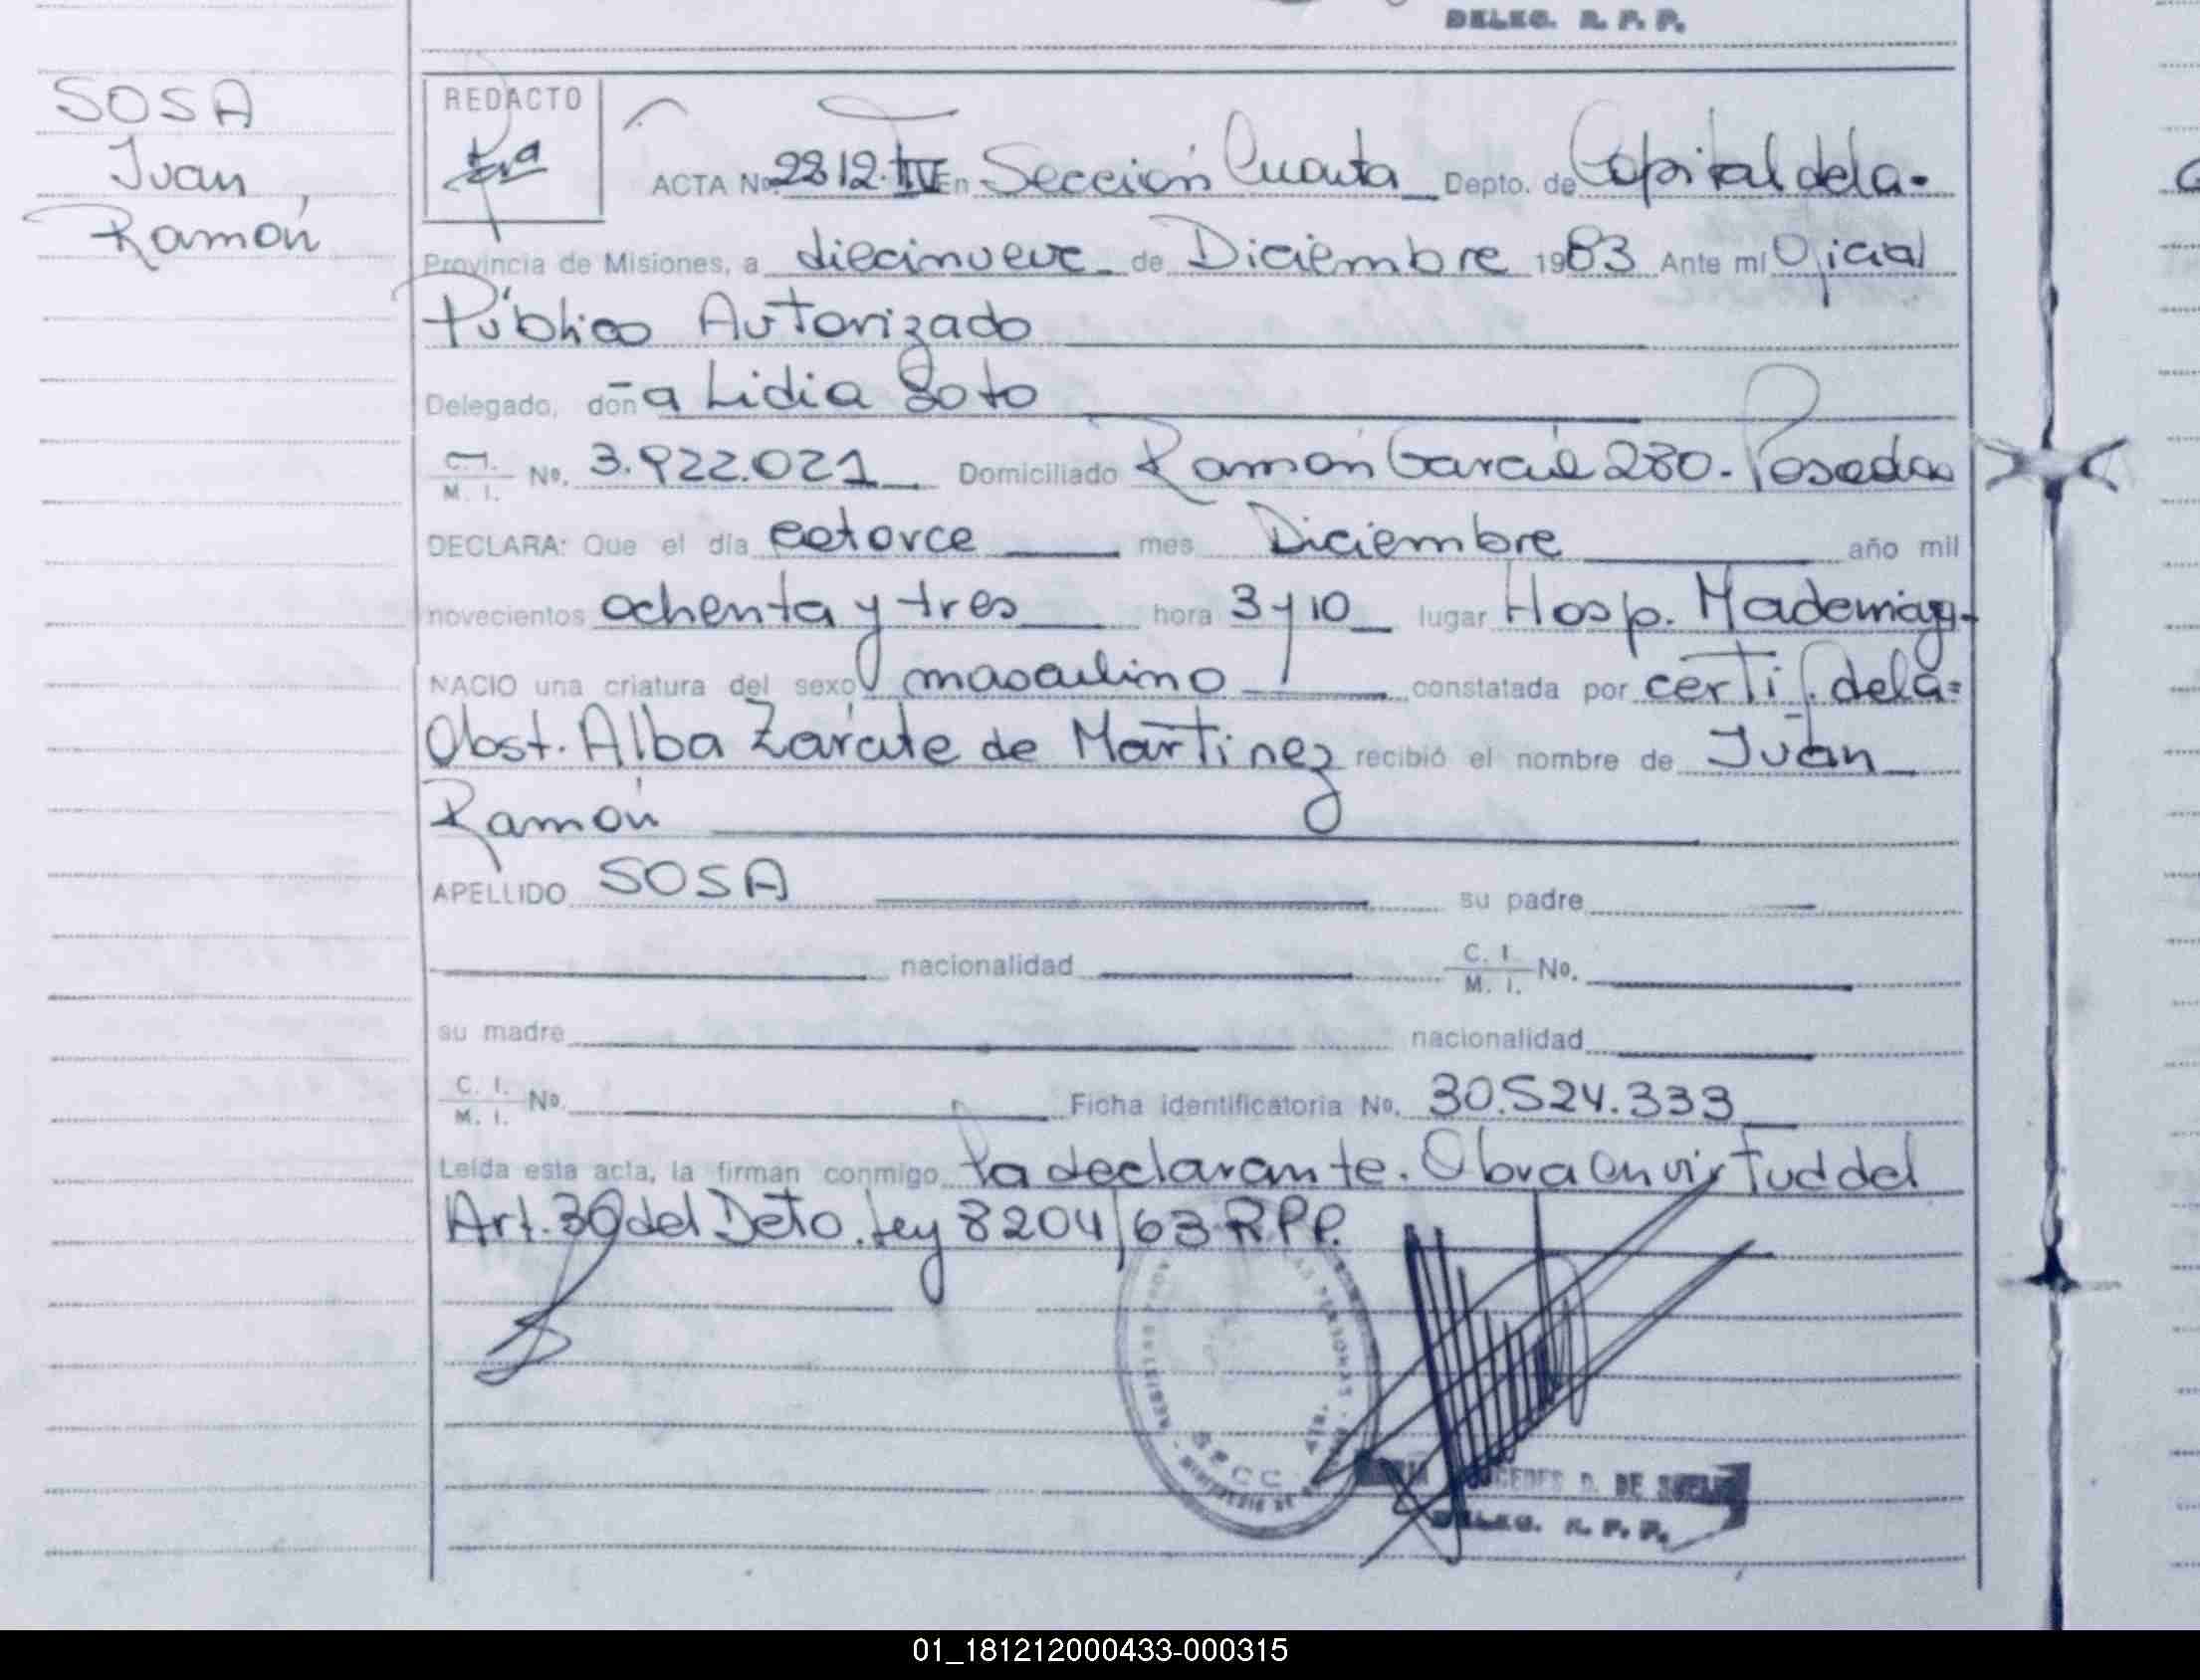 DELEG. R. P. P.
SOSA
Juan
Ramón
REDACTO
ACTA No. 2212. IV En Sección Cuarta Depto. de Capital de la
Provincia de Misiones, a diecinueve de Diciembre 1983 Ante mí Oficial
Público Autorizado
Delegado, doña Lidia Soto
C. I. / M. I. No. 3.922.021 Domiciliado Ramón García 280. Posadas
DECLARA: Que el día catorce mes Diciembre año mil
novecientos ochenta y tres hora 3 y 10 lugar Hosp. Madariaga
NACIO una criatura del sexo masculino constatada por certif. de la
Obst. Alba Zárate de Martinez recibió el nombre de Juan
Ramón
APELLIDO SOSA su padre
nacionalidad C. I. / M. I. No.
su madre nacionalidad
C. I. / M. I. No. Ficha identificatoria No. 30.524.333
Leída esta acta, la firman conmigo la declarante. Obra en virtud del
Art. 30 del Dcto. Ley 8204/63 R.P.P.
D. DE
DELEG. R. P. P.
01_181212000433-000315